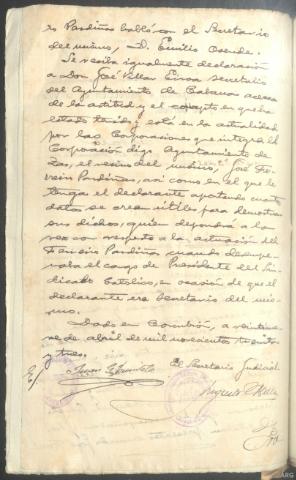 ro Pardiñas habló con el Secretario
del mismo, D. Emilio Osende.
Se reciba igualmente declaración
a Don José Villar secretario
del Ayuntamiento de Cabanas acerca
de la actitud y el concepto en que ha
estado tenido y está en la actualidad
por las Corporaciones que integra la
Corporación digo Ayuntamiento de
Zas, el vecino del mismo, José Fe-
rreín Pardiñas, así como en el que le
tenga el declarante aportando cuantos
datos se crean útiles para demostrar
sus dichos; quien depondrá a la
vez con respecto a la actuación del
Ferreín Pardiñas, cuando desempe-
ñaba el cargo de Presidente del Sin-
dicato Católico, en ocasión de que el
declarante era Secretario del mis-
mo.
Dado en Corcubión, a veintinue-
ve de abril de mil novecientos treinta
y tres.
El Secretario Judicial
ARG